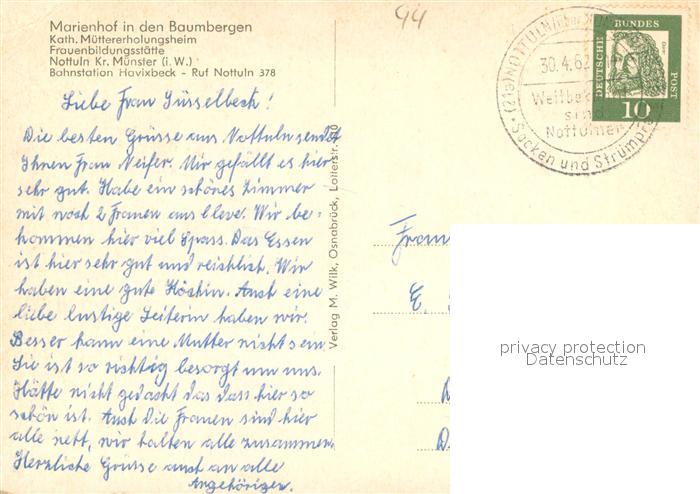 Marienhof in den Baumbergen
Kath. Müttererholungsheim
Frauenbildungsstätte
Nottuln Kr. Münster (i. W.)
Bahnstation Havixbeck - Ruf Nottuln 378
44
(21a) NOTTULN
30.4.62
Weltbe
sin
Nottulner
Socken und Strümpfe
DEUTSCHE BUNDES POST
10
Liebe Frau Süsselbeck!
Die besten Grüsse aus Nottuln sendet
Ihnen Frau Neifer. Mir gefällt es hier
sehr gut. Habe ein schönes Zimmer
mit noch 2 Frauen aus Cleve. Wir be-
kommen hier viel Spass. Das Essen
ist hier sehr gut und reichlich. Wir
haben eine gute Köchin. Auch eine
liebe lustige Leiterin haben wir.
Besser kann eine Mutter nicht sein
Sie ist so richtig besorgt um uns.
Hätte nicht gedacht das dass hier so
schön ist. Auch die Frauen sind hier
alle nett, wir halten alle zusammen.
Herzliche Grüsse auch an alle
Angehörigen.
Verlag M. Wilk, Osnabrück, Lotterstr.
Frau
E.
privacy protection
Datenschutz